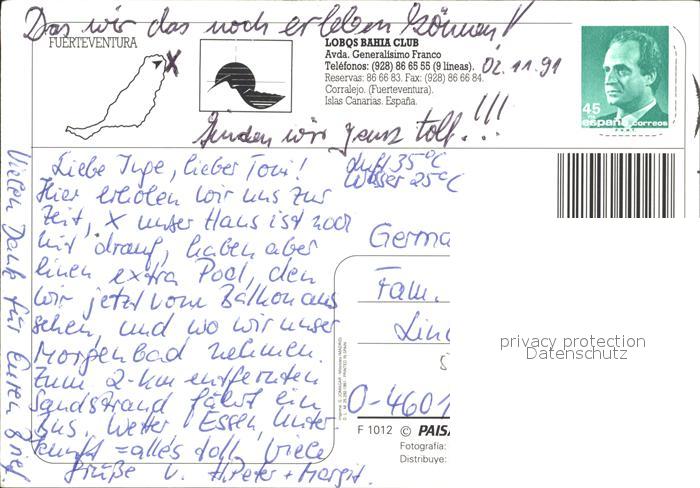 Das wir das noch erleben können!
FUERTEVENTURA
X
LOBOS BAHIA CLUB
Avda. Generalísimo Franco
Teléfonos: (928) 86 65 55 (9 líneas).
Reservas: 86 66 83. Fax: (928) 86 66 84.
Corralejo. (Fuerteventura).
Islas Canarias. España.
02.11.91
45
PTA
españa correos
F.N.M.T.
finden wir ganz toll!!!
Luft 35°C
Wasser 25°C
Liebe Inge, lieber Toni!
Hier erholen wir uns zur
Zeit, X unser Haus ist noch
nit drauf, haben aber
einen extra Pool, den
wir jetzt vom Balkon aus
sehen, und wo wir unser
Morgenbad nehmen.
Zum 2-km entfernten
Sandstrand fährt ein
Bus. Wetter Essen, Unter-
kunft = alles toll. Viele
Grüße v. H.Peter + Margit.
Vielen Dank für Euren Brief.
Germa
Fam.
Lin
O-4601
F 1012 © PAIS
Fotografía:
Distribuye:
privacy protection
Datenschutz